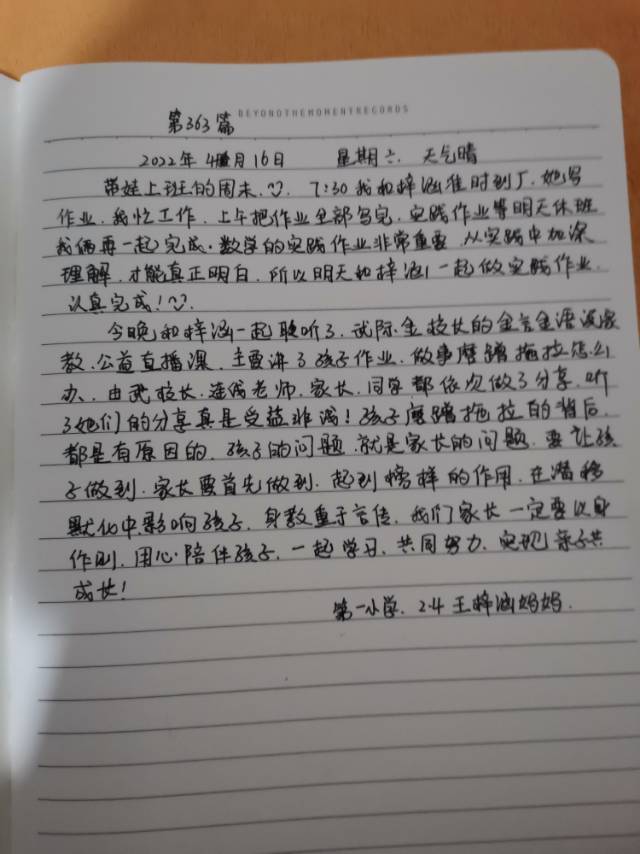 BEYONDTHEMOMENTRECORDS
第363篇
2022年4月16日 星期六 天气晴
带娃上班的周末. 7:30我和梓涵准时到了, 她写
作业, 我忙工作, 上午把作业全部写完, 实践作业等明天休班
我俩再一起完成. 数学的实践作业非常重要, 从实践中加深
理解, 才能真正明白, 所以明天和梓涵一起做实践作业,
认真完成!
今晚和梓涵一起聆听了, 武际金校长的金言金语说家
教, 公益直播课, 主要讲了孩子作业, 做事磨蹭拖拉怎么
办, 由武校长, 连线老师, 家长, 同学都依次做了分享, 听
了她们的分享真是受益非浅! 孩子磨蹭拖拉的背后
都是有原因的, 孩子的问题, 就是家长的问题, 要让孩
子做到, 家长要首先做到, 起到榜样的作用, 在潜移
默化中影响孩子, 身教重于言传, 我们家长一定要以身
作则, 用心陪伴孩子, 一起学习, 共同努力, 实现亲子共
成长!
第一小学, 2.4 王梓涵妈妈.